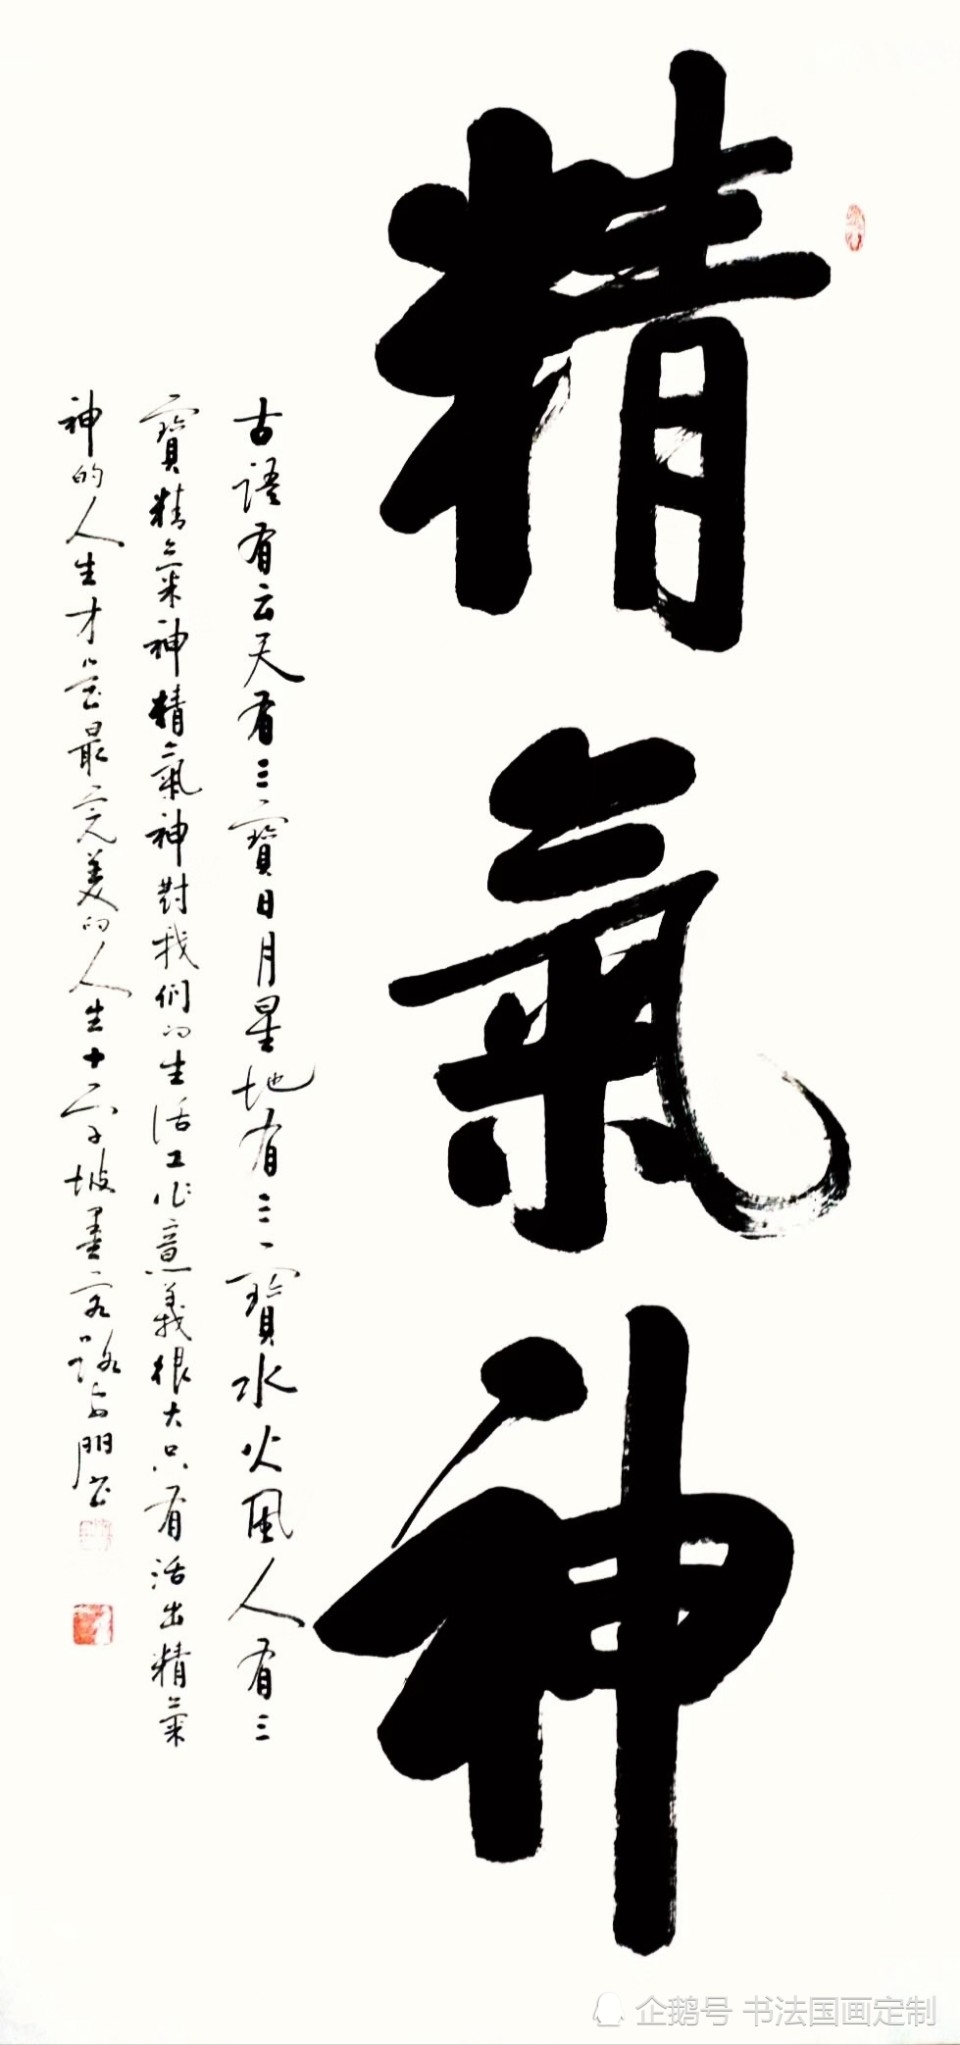 精氣神
古語有云天有三寶日月星地有三寶水火風人有三
寶精氣神精氣神對我們的生活工作意義很大只有活出精氣
神的人生才是最完美的人生十二字坡墨客路朋書
企鹅号 书法国画定制